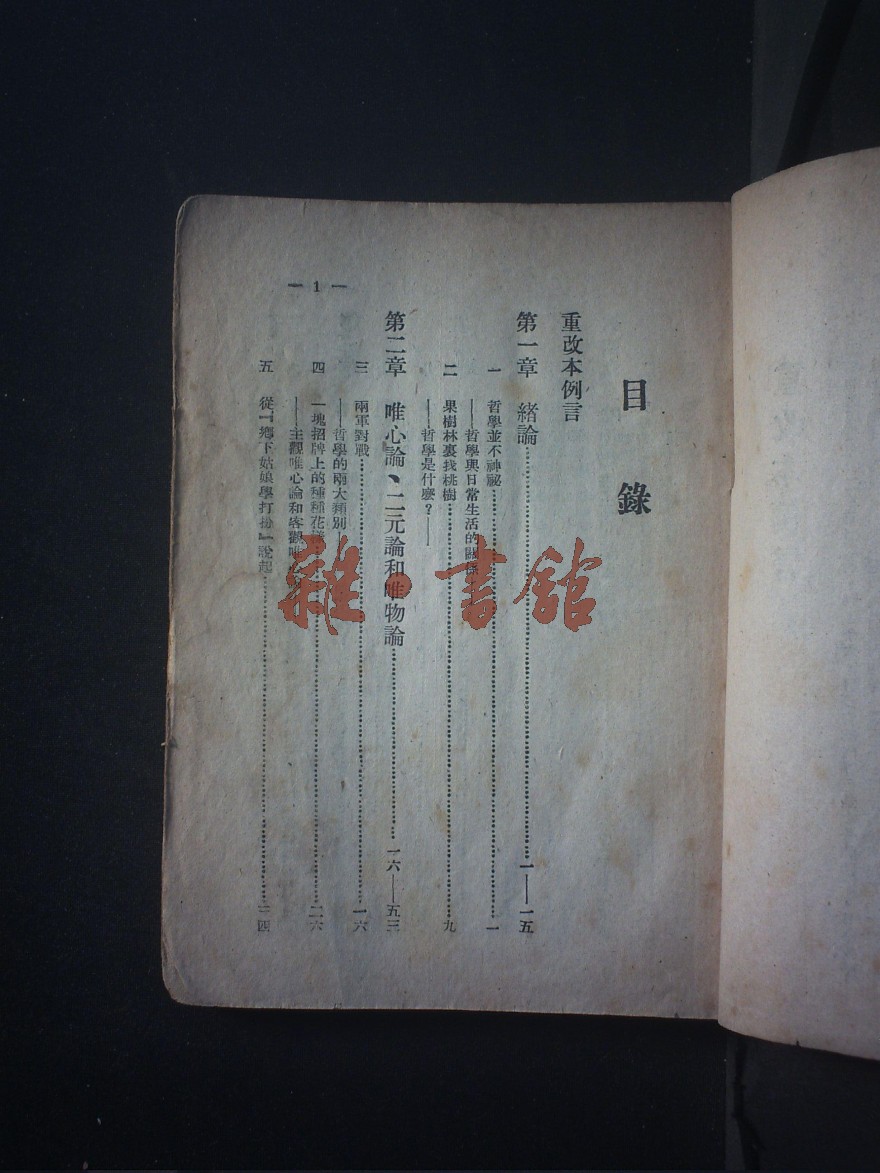 目錄
重改本例言
第一章 緒論……一——一五
一 哲學並不神祕……一
——哲學與日常生活的關係
二 果樹林裏找桃樹……九
——哲學是什麼？——
第二章 唯心論、二元論和唯物論……一六——五三
三 兩軍對戰……一六
——哲學的兩大類別
四 一塊招牌上的種種花……二六
——主觀唯心論和客觀唯
五 從『鄉下姑娘學打扮』說起……三四
— 1 —
雜·書館